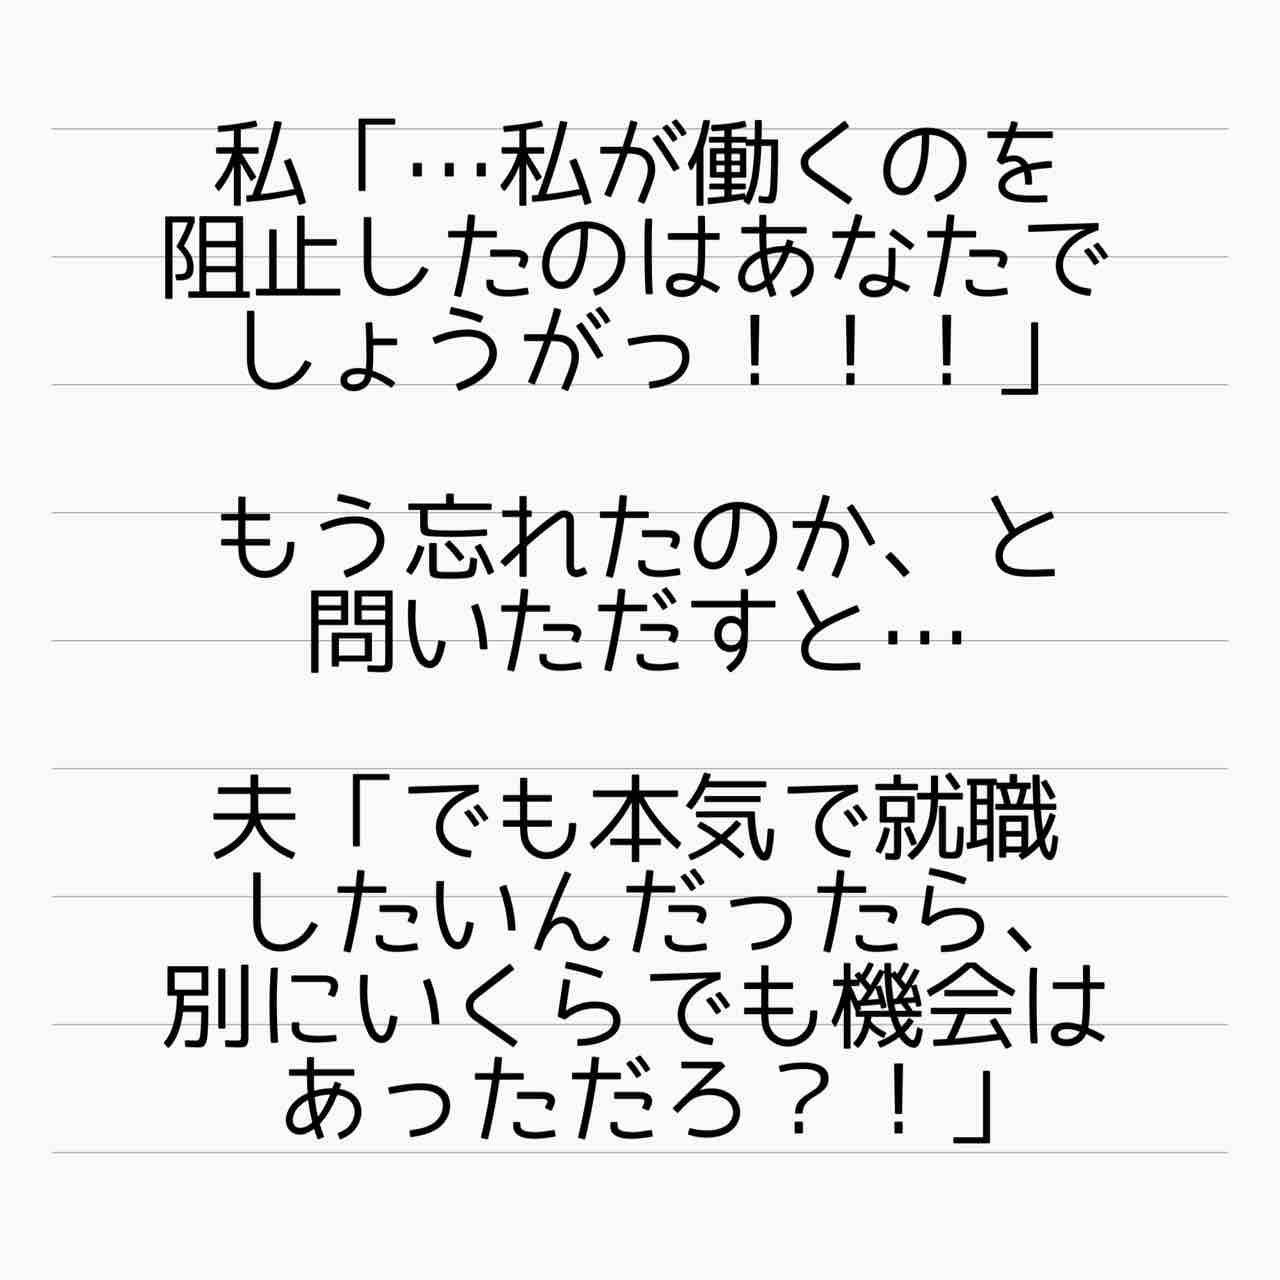 私「…私が働くのを
阻止したのはあなたで
しょうがっ！！！」
もう忘れたのか、と
問いただすと…
夫「でも本気で就職
したいんだったら、
別にいくらでも機会は
あっただろ？！」